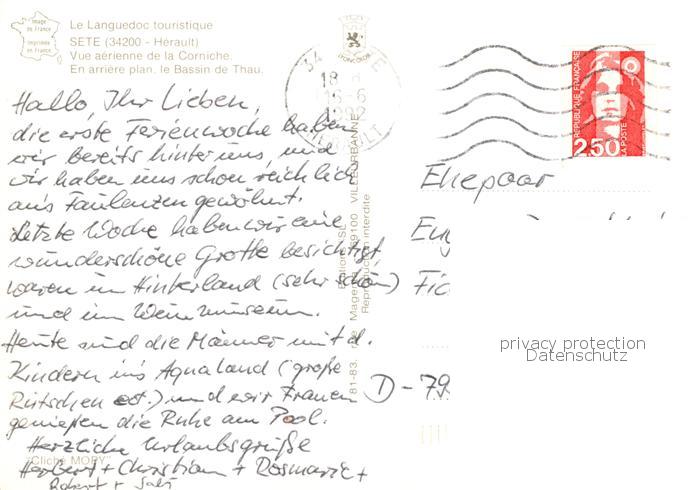 Image de France
Imprimée en France
Le Languedoc touristique
SETE (34200 - Hérault)
Vue aérienne de la Corniche.
En arrière plan, le Bassin de Thau.
34
18 H
16-6
1992
HERAULT
REPUBLIQUE FRANÇAISE
2,50
LA POSTE
Hallo, Ihr Lieben,
die erste Ferienwoche haben
wir bereits hinter uns, und
wir haben uns schon reichlich
an's Faulenzen gewöhnt.
Letzte Woche haben wir eine
wunderschöne Grotte besichtigt
waren im Hinterland (sehr schön)
und im Weinmuseum.
Heute sind die Männer mit d.
Kindern in's Aqualand (große
Rutschen ect.) und wir Frauen
genießen die Ruhe am Pool.
Herzliche Urlaubsgrüße
Herbert + Christian + Rosmarie +
Robert +
"Cliché MOPY"
81-83, rue Magenta 69100 VILLEURBANNE
Reproduction interdite
Ehepaar
D - 79
privacy protection
Datenschutz